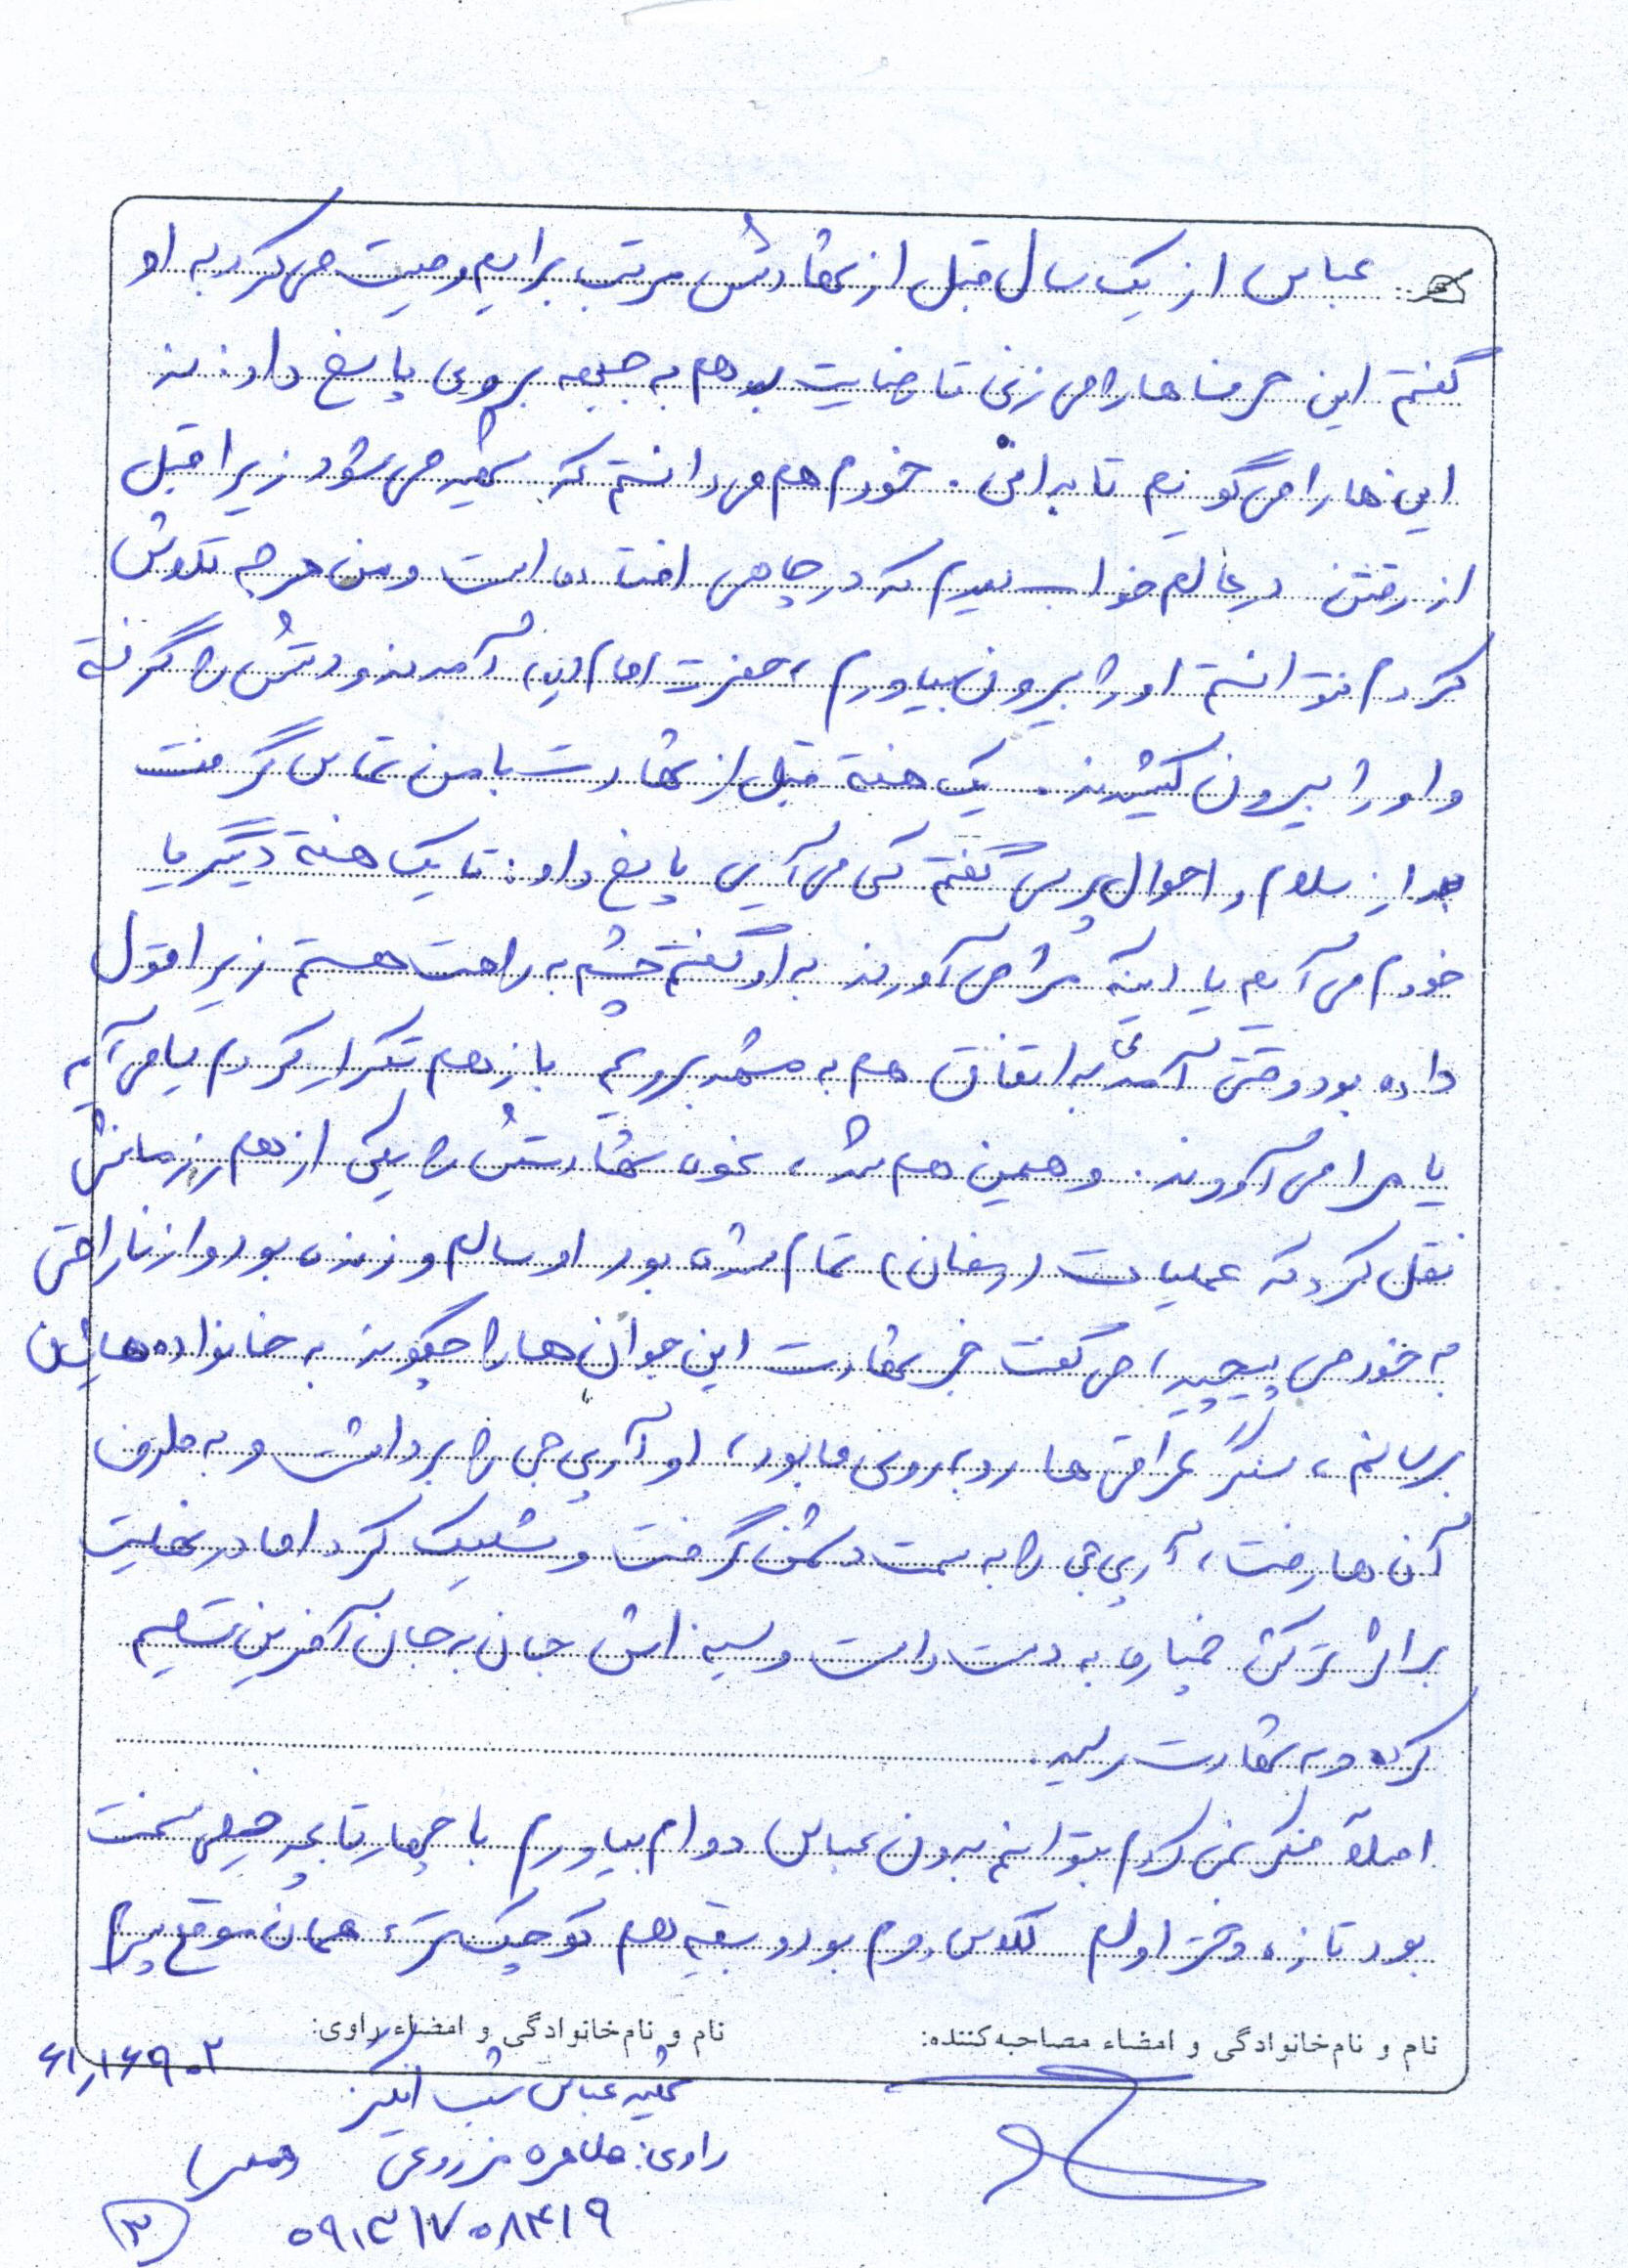 عباس از یک سال قبل از شهادتش مرتب برایم وصیت می‌کرد به او
گفتم این حرف‌ها را می‌زنی تا رضایت بدهم به جبهه بروی پاسخ داد: نه
این‌ها را می‌گویم تا بدانی. خودم هم می‌دانستم که شهید می‌شود زیرا قبل
از رفتن در عالم خواب دیدم که در چاهی افتاده است و من هر چه تلاش
کردم نتوانستم او را بیرون بیاورم، حضرت امام آمدند و دستش را گرفته
و او را بیرون کشیدند. یک هفته قبل از شهادت با من تماس گرفت
بعد از سلام و احوال‌پرسی گفتم کی می‌آیی پاسخ داد: تا یک هفته دیگر یا
خودم می‌آیم یا اینکه مرا می‌آورند به او گفتم چشم به راهت هستم زیرا قول
داده بود وقتی آمد به اتفاق هم به مشهد برویم باز هم تکرار کرد یا می‌آیم
یا مرا می‌آورند. و همین هم شد، نحوه شهادتش را یکی از هم رزمانش
نقل کرد که عملیات (رمضان) تمام شده بود او سالم و زنده بود و از ناراحتی
به خود می‌پیچید، می‌گفت خبر شهادت این جوان‌ها را چگونه به خانواده‌هایشان
برسانم، سنگر عراقی‌ها روبه‌روی ما بود، او آرپی‌جی را برداشت و به طرف
آن‌ها رفت، آرپی‌جی را به سمت دشمن گرفت و شلیک کرد اما در نهایت
بر اثر ترکش خمپاره به دست راست و سینه‌اش جان به جان آفرین تسلیم
کرده و به شهادت رسید.
اصلاً فکر نمی‌کردم بتوانم بدون عباس دوام بیاورم با چهار تا بچه خیلی سخت
بود تازه دختر اولم کلاس دوم بود و بقیه هم کوچک‌تر، همان موقع
نام و نام‌خانوادگی و امضاء مصاحبه‌کننده:
نام و نام‌خانوادگی و امضاء راوی:
شهید عباس شب انگیز
راوی: طاهره مزروعی همسر
۰۹۱۳۱۷۰۸۴۱۹